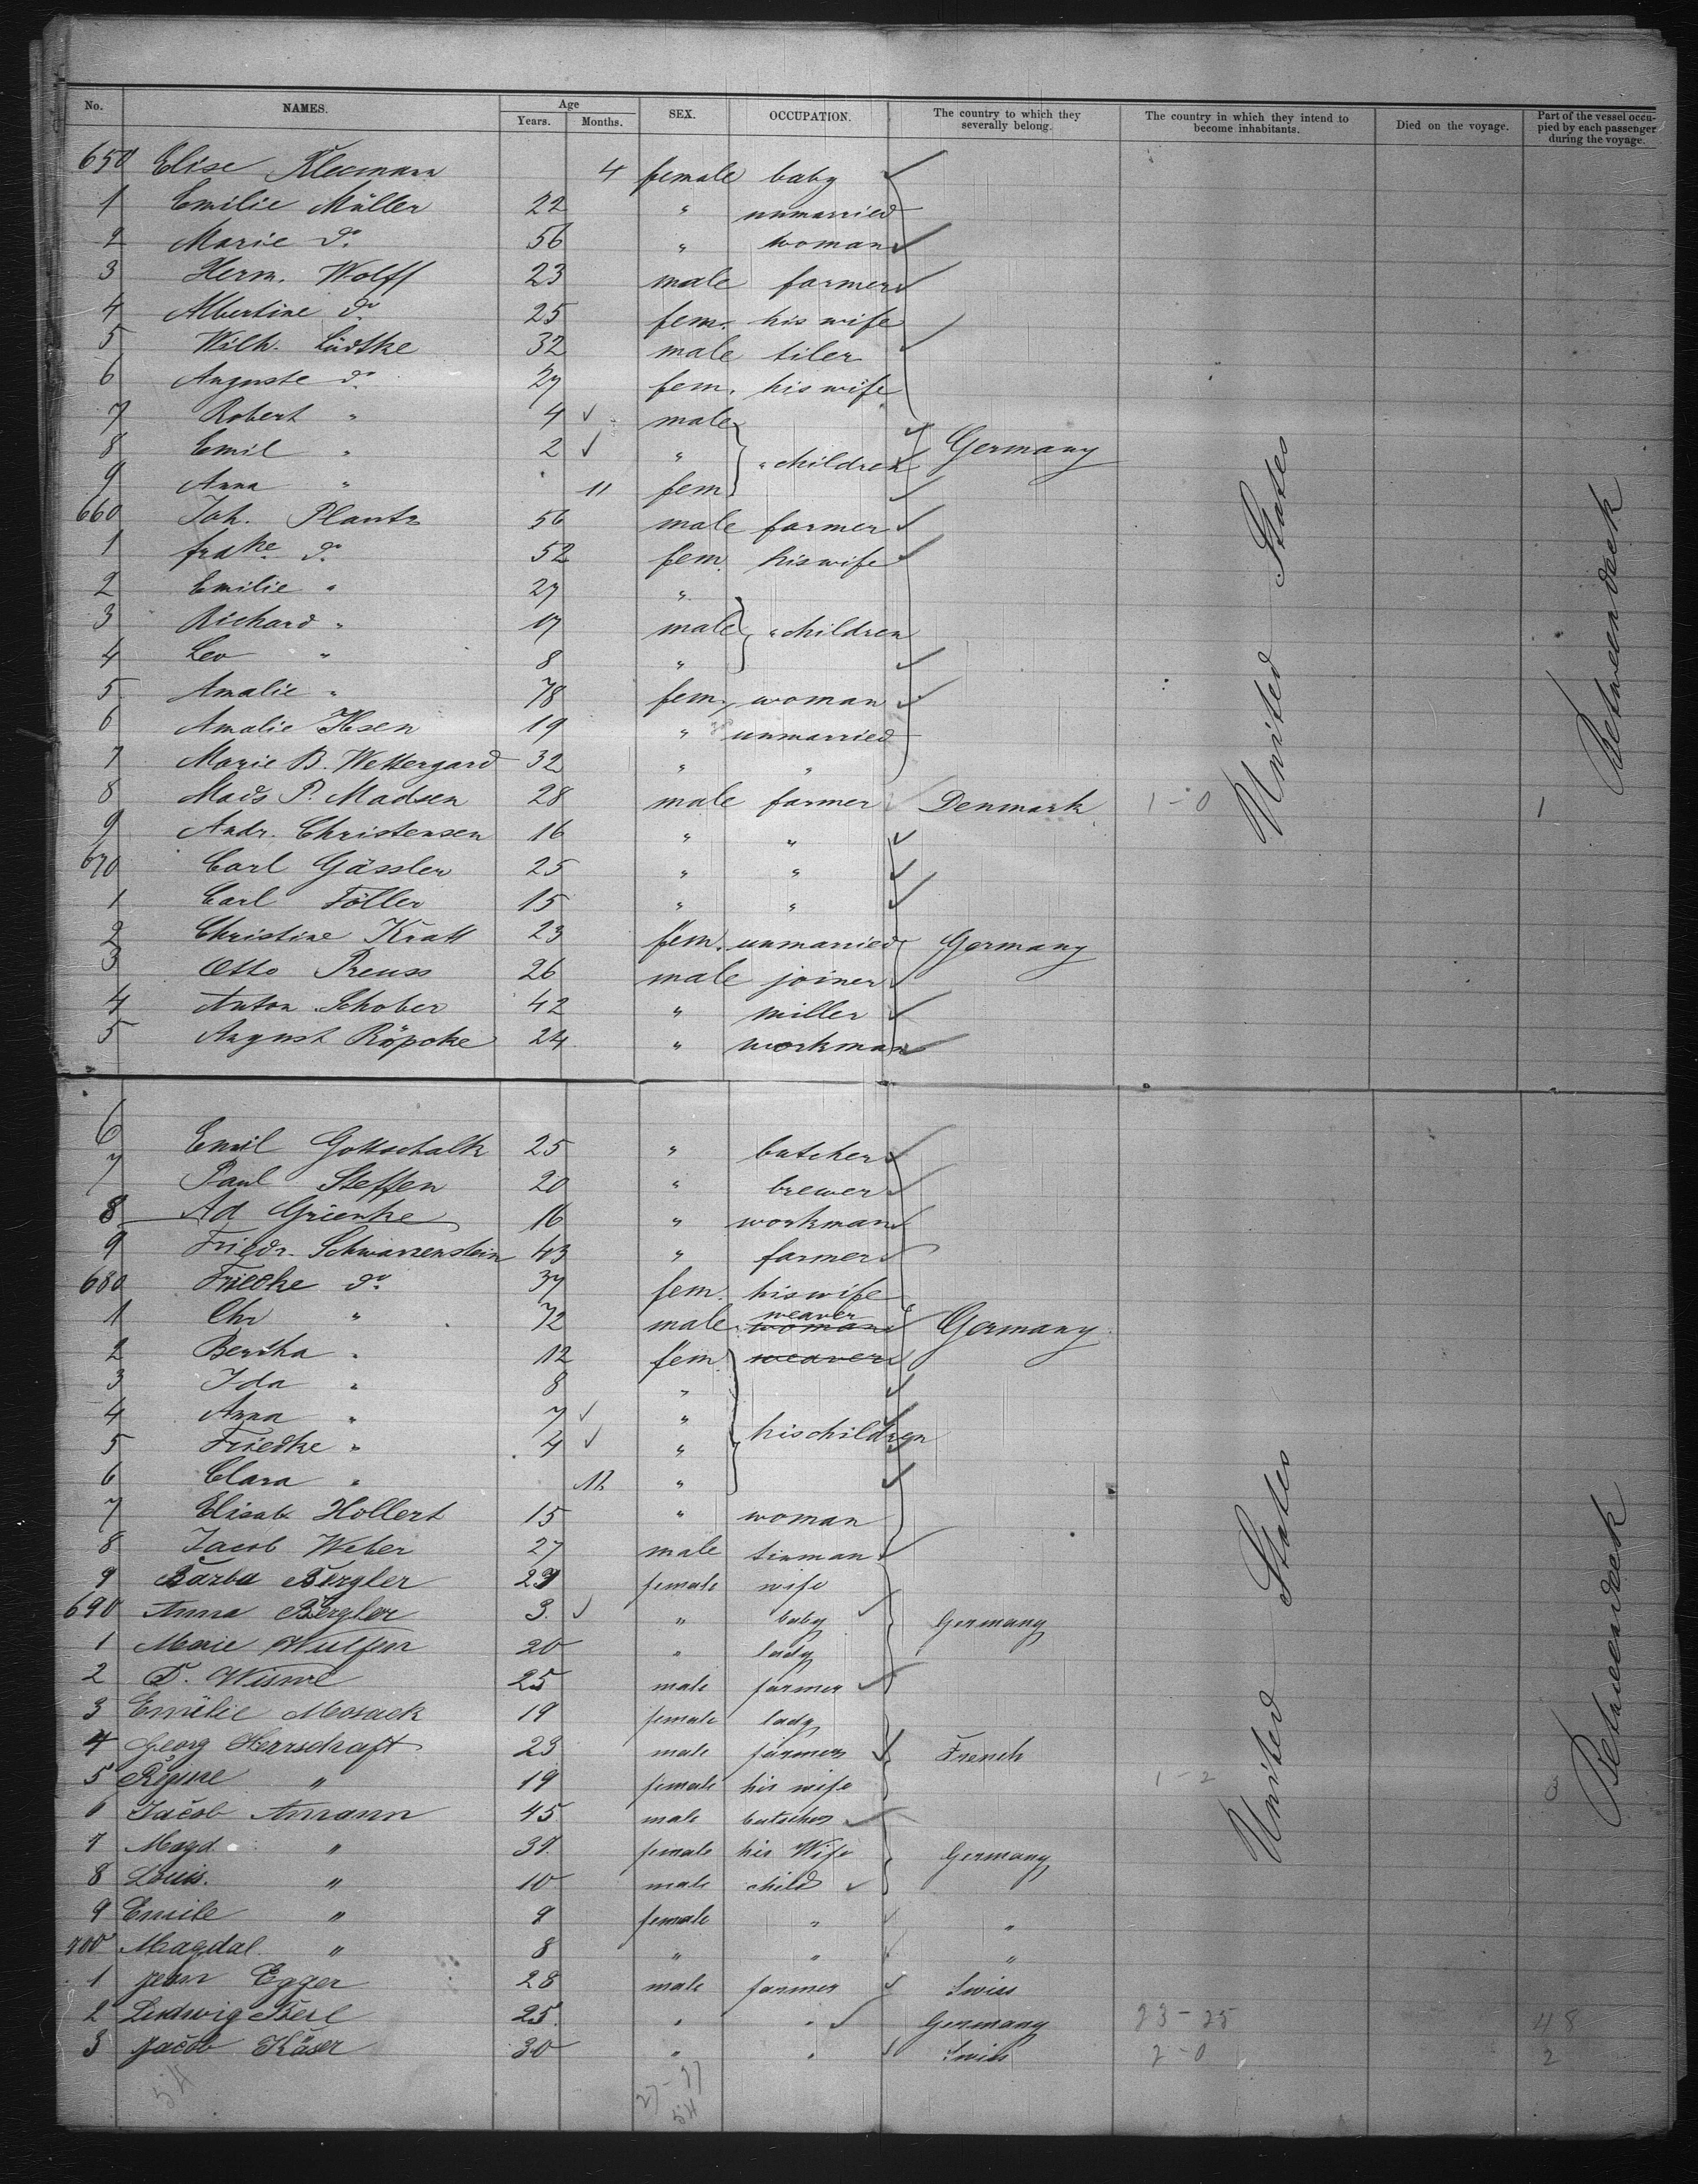 No. NAMES. Age Years. Months. SEX. OCCUPATION. The country to which they severally belong. The country in which they intend to become inhabitants. Died on the voyage. Part of the vessel occupied by each passenger during the voyage.
650 Elise Kleemann 4 female baby
1 Emilie Müller 22 " unmarried
2 Marie do. 56 " woman
3 Herm. Wolff 23 male farmer
4 Albertine do 25 fem. his wife
5 Wilh. Lüdtke 32 male tiler
6 Auguste do. 27 fem. his wife
7 Robert " 4 male
8 Emil " 2 " children Germany
9 Anna " 11 fem
660 Joh. Plantz 56 male farmer
1 do. 52 fem. his wife
2 Emilie " 27 "
3 Richard " 17 male children
4 Leo " 8 "
5 Amalie " 78 fem. woman
6 Amalie Ilsen 19 " unmarried
7 Marie B. Wettergard 32 " "
8 Mads P. Madsen 28 male farmer Denmark 1-0 United States 1 Betweendeck
9 Andr. Christensen 16 " "
670 Carl Gässler 25 " "
1 Carl Föller 15 " "
2 Christine Kratt 23 fem. unmarried Germany
3 Otto Preuss 26 male joiner
4 Anton Schober 42 " miller
5 August Röpcke 24 " workman
6 Emil Gottschalk 25 " butcher
7 Paul Steffen 20 " brewer
8 Ad Grienke 16 " workman
9 Friedr. Schwarzenstein 43 " farmer
680 Friedke do. 37 fem. his wife
1 Chr " 72 male weaver woman Germany
2 Bertha " 12 fem weaver
3 Ida " 8 "
4 Anna " 7 " his children
5 Friedke " 4 "
6 Clara " 11 "
7 Elisab. Hollert 15 " woman
8 Jacob Weber 27 male tinman
9 Barba Bergler 29 female wife
690 Anna Bergler 3 " baby Germany
1 Marie Wulfen 20 " lady
2 25 male farmer
3 Emilie Mosack 19 female lady
4 Georg Herrschaft 23 male farmer French
5 Regine " 19 female his wife 1-2 United States 3 Betweendeck
6 Jacob Amann 45 male butscher
7 Magd. " 37 female his Wife Germany
8 Louis. " 10 male child
9 Emile " 9 female " "
700 Magdal. " 8 " " "
1 Jean Egger 28 male farmer Swiss
2 Ludwig Berl 25 " " Germany 23-25 48
3 Jacob Käser 30 " " Swiss 2-0 2
54 27-27
54